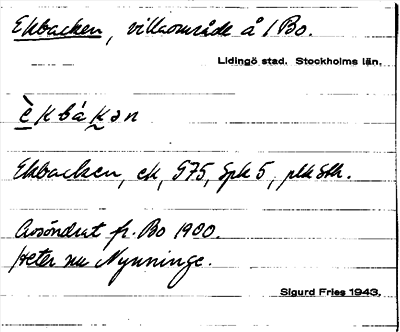 Ekbacken, villaområde å 1 Bo.
Lidingö stad. Stockholms län.
èkbákən
Ekbacken, ek, 575, Spk 5, plk Sth.
Avsöndrat fr. Bo 1900.
Heter nu Nynninge.
Sigurd Fries 1943.